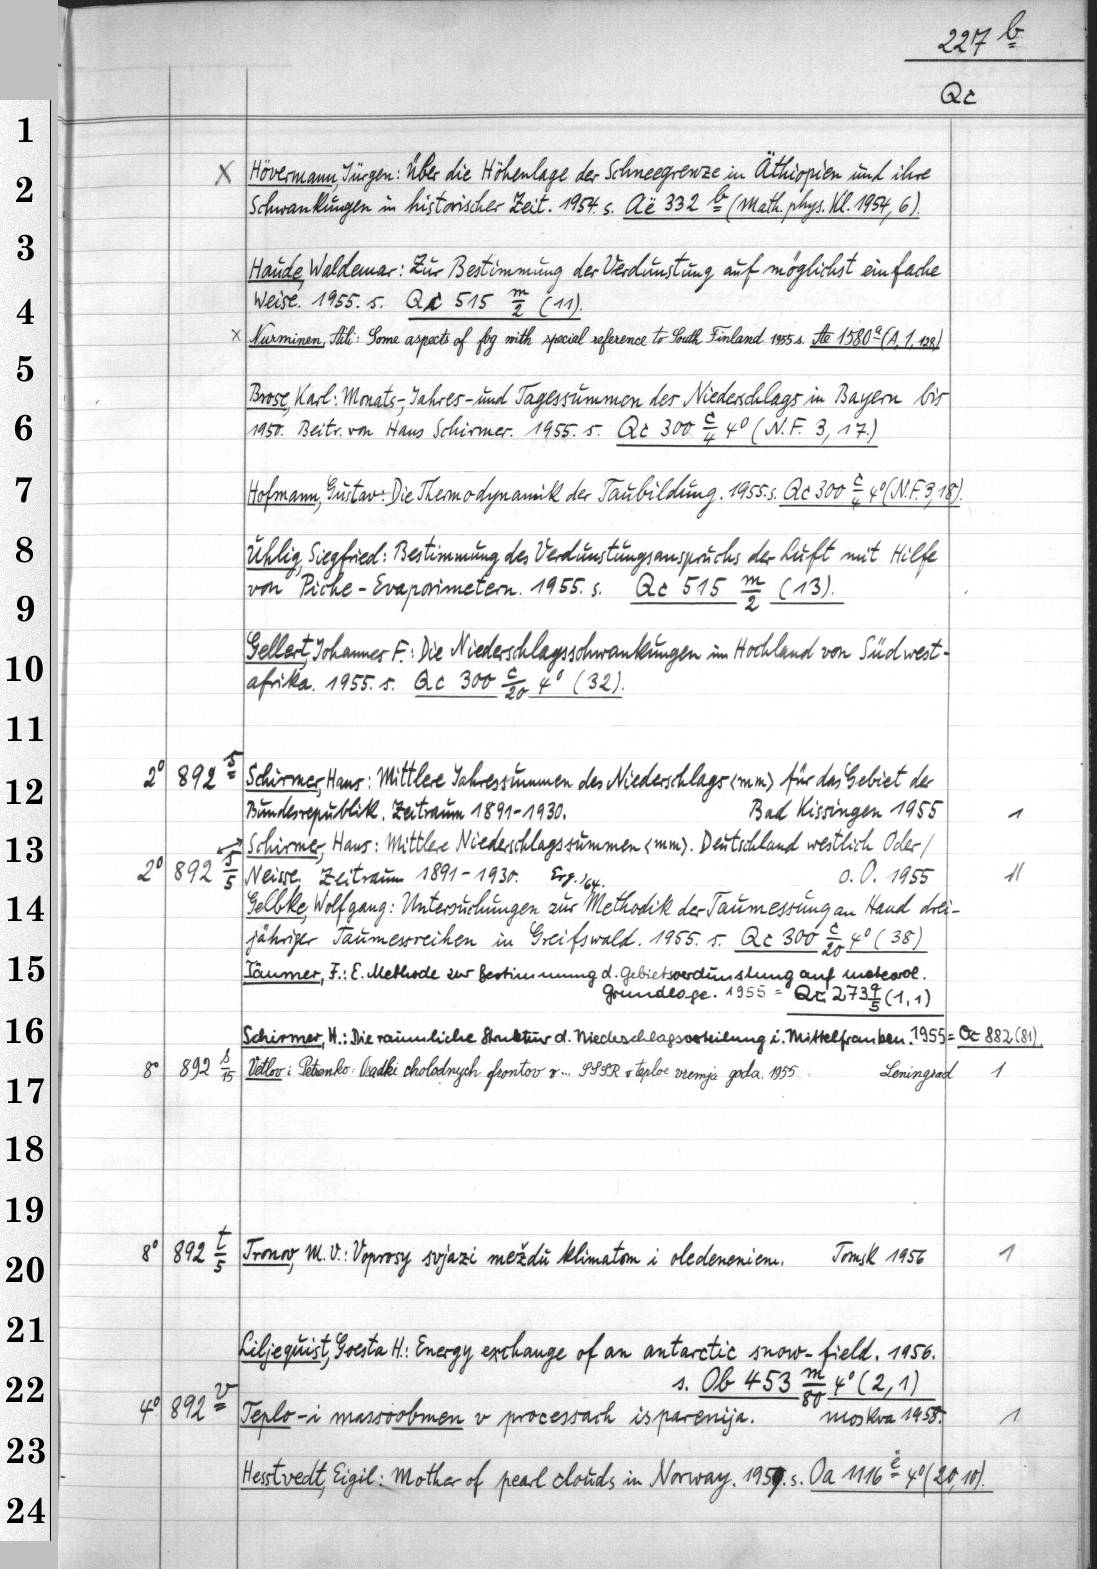 227 b
Qc
1
2
3
4
5
6
7
8
9
10
11
12
13
14
15
16
17
18
19
20
21
22
23
24
x Hövermann, Jürgen: Über die Höhenlage der Schneegrenze in Äthiopien und ihre
Schwankungen in historischer Zeit. 1954. s. Aë 332 b (Math. phys. Kl. 1954, 6).
Haude, Waldemar: Zur Bestimmung der Verdunstung auf möglichst einfache
Weise. 1955. s. Qc 515 m/2 (11).
x Nurminen, Atli: Some aspects of fog with special reference to South Finland. 1955 s. Ae 1580 a (A, 1, 128)
Brose, Karl: Monats-, Jahres- und Tagessummen des Niederschlags in Bayern bis
1950. Beitr. von Hans Schirmer. 1955. s. Qc 300 c/4 4° (N.F. 3, 17.)
Hofmann, Gustav: Die Thermodynamik der Taubildung. 1955. s. Qc 300 c/4 4° (N.F. 3, 18).
Uhlig, Siegfried: Bestimmung des Verdunstungsanspruchs der Luft mit Hilfe
von Piche-Evaporimetern. 1955. s. Qc 515 m/2 (13).
Gellert, Johannes F.: Die Niederschlagsschwankungen im Hochland von Südwest-
afrika. 1955. s. Qc 300 c/20 4° (32).
2° 892 s Schirmer, Hans: Mittlere Jahressummen des Niederschlags (mm) für das Gebiet der
Bundesrepublik. Zeitraum 1891-1930. Bad Kissingen 1955 1
Schirmer, Hans: Mittlere Niederschlagssummen (mm). Deutschland westlich Oder/
2° 892 s/5 Neisse. Zeitraum 1891-1930. Erg. 64. o. O. 1955 11
Gelbke, Wolfgang: Untersuchungen zur Methodik der Taumessung an Hand drei-
jähriger Taumessreihen in Greifswald. 1955. s. Qc 300 c/20 4° (38)
Täumer, F.: E. Methode zur Bestimmung d. Gebietsverdunstung auf meteorol.
Grundlage. 1955 = Qc 273 q/5 (1,1)
Schirmer, H.: Die räumliche Struktur d. Niederschlagsverteilung i. Mittelfranken. 1955 = Oc 882 (81)
8° 892 s/15 Vetlov i Petrenko: Osadki cholodnych frontov v... SSSR v teploe vremja goda. 1955 Leningrad 1
8° 892 t/5 Tronov, M. V.: Voprosy svjazi meždu klimatom i oledeneniem. Tomsk 1956 1
Liljequist, Goesta H.: Energy exchange of an antarctic snow-field. 1956.
s. Ob 453 m/80 4° (2,1)
4° 892 v Teplo- i massoobmen v processach isparenija. Moskva 1958. 1
Hesstvedt, Eigil: Mother of pearl clouds in Norway. 1959. s. Oa 1116 ë 4° (20,10).